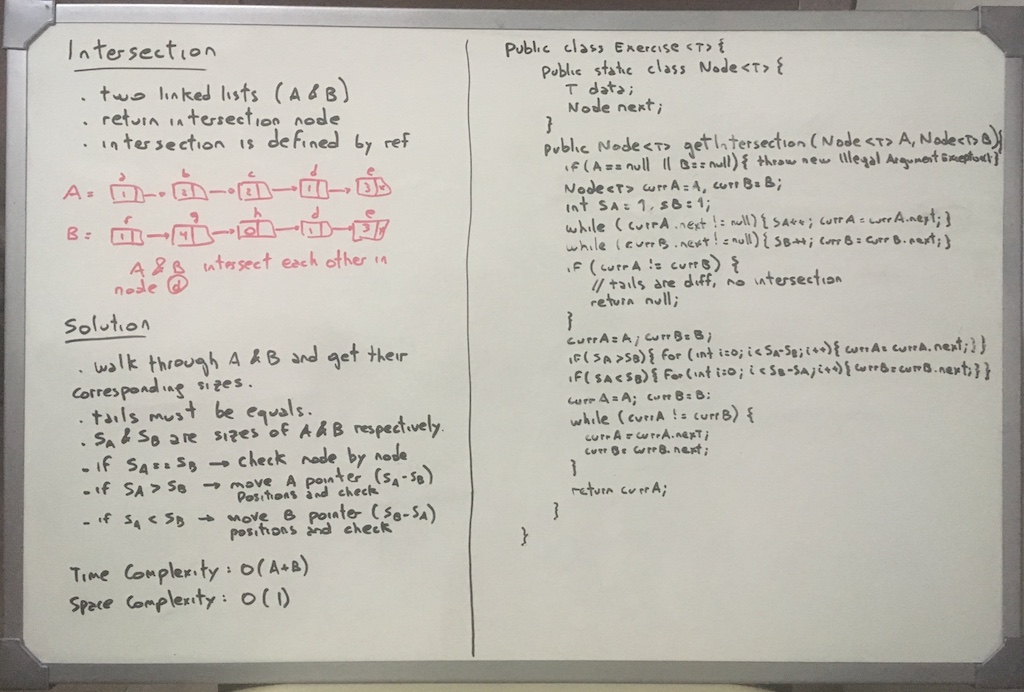 Intersection
. two linked lists (A & B)
. return intersection node
. intersection is defined by ref
a b c d e
A = 1 2 2 1 3
f g h d e
B = 1 4 0 1 3
A & B intersect each other in
node d
Solution
. walk through A & B and get their
corresponding sizes.
. tails must be equals.
. SA & SB are sizes of A & B respectively.
- if SA == SB → check node by node
- if SA > SB → move A pointer (SA-SB)
positions and check
- if SA < SB → move B pointer (SB-SA)
positions and check
Time Complexity: O(A+B)
Space Complexity: O(1)
public class Exercise <T> {
public static class Node<T> {
T data;
Node next;
}
public Node<T> getIntersection(Node<T> A, Node<T> B){
if (A == null || B == null) { throw new IllegalArgumentException }
Node<T> currA = A, currB = B;
int SA = 1, SB = 1;
while (currA.next != null) { SA++; currA = currA.next; }
while (currB.next != null) { SB++; currB = currB.next; }
if (currA != currB) {
// tails are diff, no intersection
return null;
}
currA = A; currB = B;
if (SA > SB) { for (int i=0; i < SA-SB; i++) { currA = currA.next; } }
if (SA < SB) { for (int i=0; i < SB-SA; i++) { currB = currB.next; } }
currA = A; currB = B;
while (currA != currB) {
currA = currA.next;
currB = currB.next;
}
return currA;
}
}